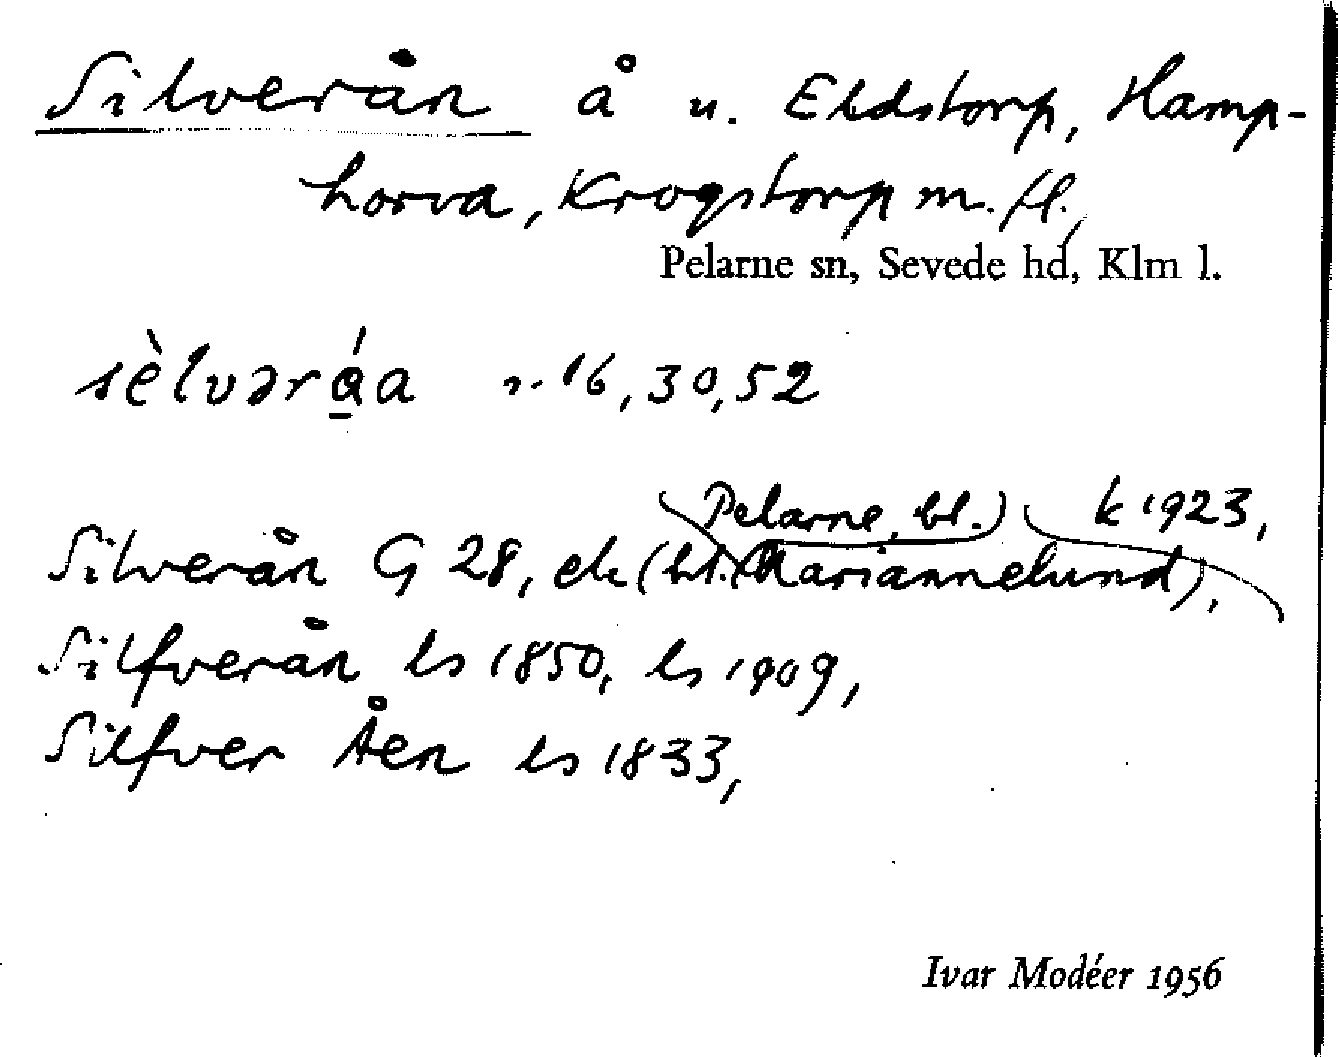 Silverån å u. Eldstorp, Hamp-
horva, Krogstorp m. fl.,
Pelarne sn, Sevede hd, Klm l.
sèlvərá̱a r. 16, 30, 52
Pelarne, bl.) k 1923,
Silverån G 28, ek (bl. Mariannelund),
Silfverån ls 1850, ls 1909,
Silfver Åen ls 1833,
Ivar Modéer 1956